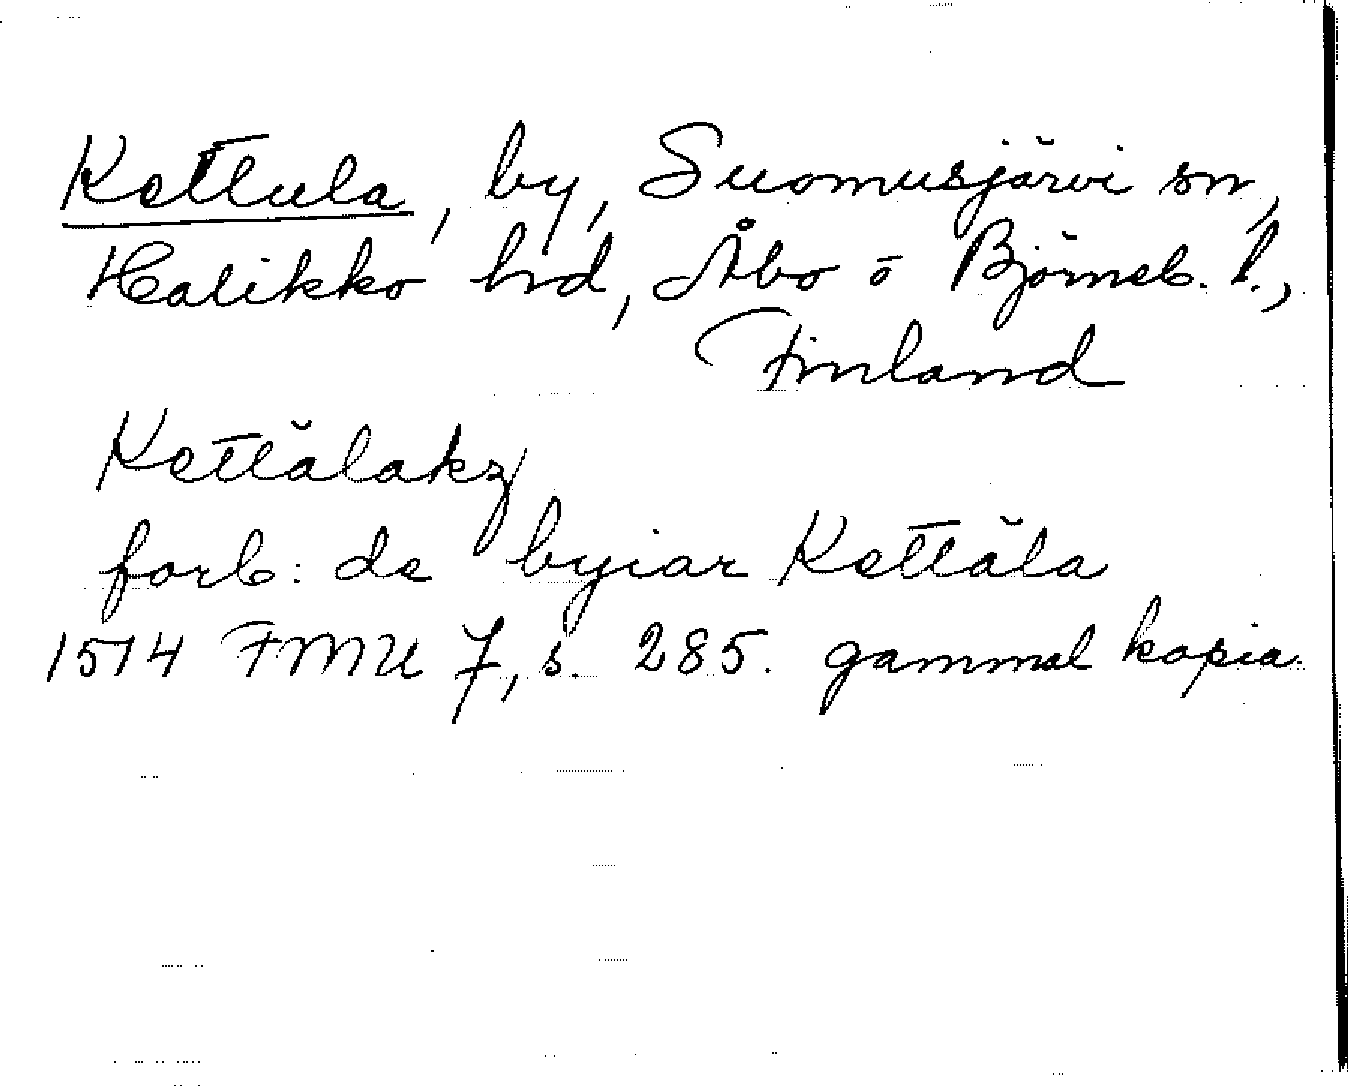 Kettula, by, Suomusjärvi sn,
Halikko hd, Åbo o Björneb. l.,
Finland
Kettälaky
forb: de byiar Kettäla
1514 FMU 7, s. 285. gammal kopia.